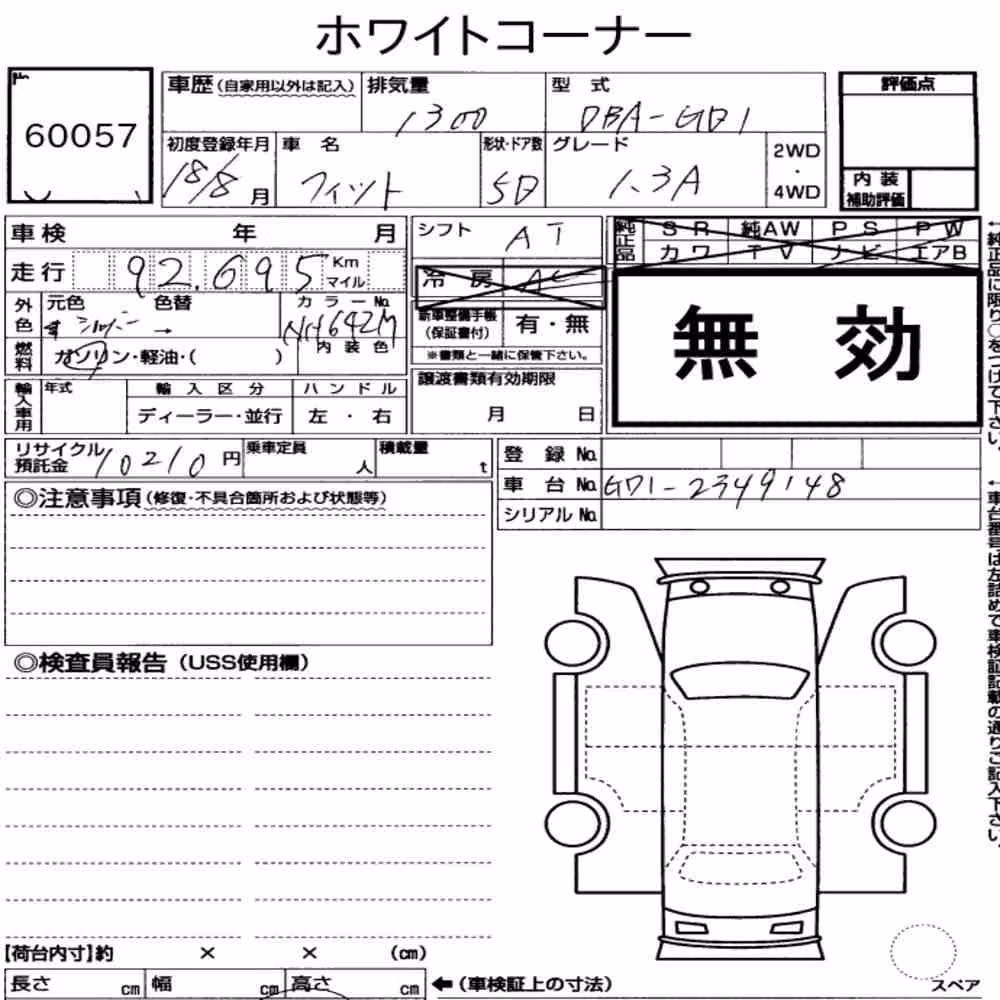 ホワイトコーナー
No.
60057
車歴(自家用以外は記入) 排気量 型式 評価点
1300 DBA-GD1
初度登録年月 車名 形状・ドア数 グレード 2WD・4WD
18/8月 フィット 5D 1.3A
内装補助評価
車検 年 月
シフト AT
純正品 SR 純AW PS PW
カワ TV ナビ エアB
走行 92,695 Km マイル
冷房 AC
外色 元色 色替 カラーNo.
シルバー → NH642M
内装色
新車整備手帳(保証書付) 有・無
※書類と一緒に保管下さい。
無効
燃料 ガソリン・軽油・( )
輸入車用 年式 輸入区分 ハンドル
ディーラー・並行 左・右
譲渡書類有効期限
月 日
リサイクル預託金 10210円 乗車定員 人 積載量 t
登録No.
車台No. GD1-2349148
シリアルNo.
◎注意事項(修復・不具合箇所および状態等)
◎検査員報告(USS使用欄)
←純正品に限り○をつけて下さい。
←車台番号は左詰めで車検証記載の通りご記入下さい。
【荷台内寸】約 × × (cm)
長さ cm 幅 cm 高さ cm ←(車検証上の寸法)
スペア